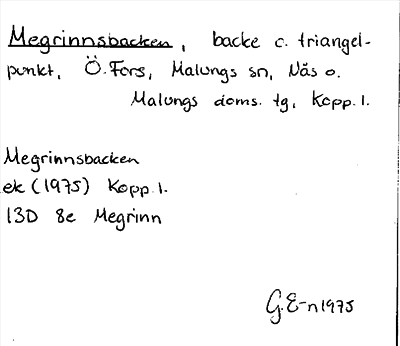 Megrinnsbacken, backe o. triangel-
punkt, Ö. Fors, Malungs sn, Näs o.
Malungs doms. tg, Kopp. l.
Megrinnsbacken
ek (1975) Kopp. l.
13D 8e Megrinn
G.E-n 1975